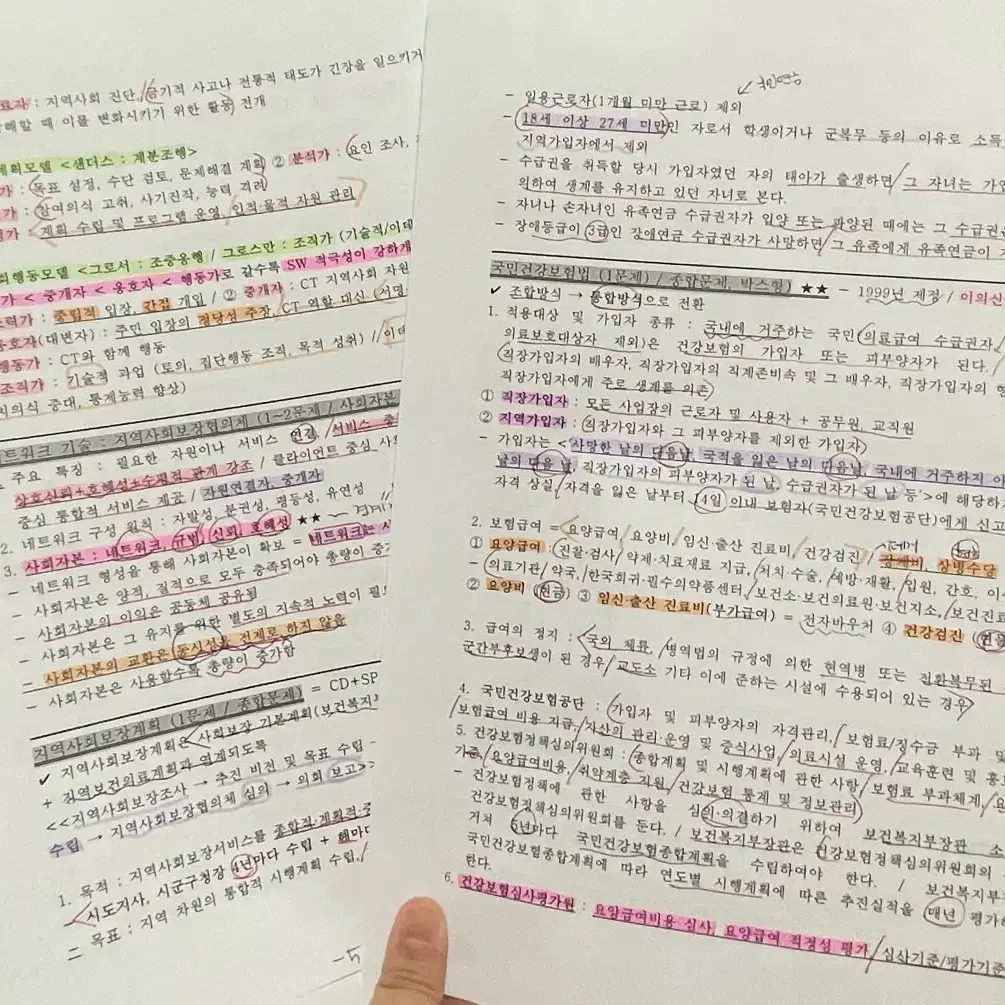 료자 : 지역사회 진단, 습기적 사고나 전통적 태도가 긴장을 일으키거
해할 때 이를 변화시키기 위한 활동 전개
계획모델 <샌더스 : 계분조행>
가 : 목표 설정, 수단 검토, 문제해결 계획 ② 분석가 : 요인 조사,
가 : 참여의식 고취, 사기진작, 능력 격려
정가 : 계획 수립 및 프로그램 운영, 인적·물적 자원 관리
회행동모델 <그로서 : 조중옹행 / 그로스만 : 조직가 (기술적/이데
가 < 중개자 < 옹호자 < 행동가로 갈수록 SW 적극성이 강하게
조력가 : 중립적 입장, 간접 개입 / ② 중개자 : CT 지역사회 자원
옹호자(대변자) : 주민 입장의 정당성 주장, CT 역할 대신 (서명
행동가 : CT와 함께 행동
조직가 : 기술적 과업 (토의, 집단행동 조직, 목적 성취) // 이데
의식 증대, 통제능력 향상)
네트워크 기술 : 지역사회보장협의체 (1~2문제 / 사회자본
주요 특징 : 필요한 자원이나 서비스 연결, 서비스 중
상호신뢰+호혜성+수평적 관계 강조 / 클라이언트 중심 사
중심 통합적 서비스 제공 / 자원연결자, 중개자
2. 네트워크 구성 원칙 : 자발성, 분권성, 평등성, 유연성
3. 사회자본 : 네트워크, 규범, 신뢰, 호혜성 ★★
- 네트워크 형성을 통해 사회자본이 확보 = 네트워크는 사
- 사회자본은 양적, 질적으로 모두 충족되어야 총량이 증
- 사회자본의 이익은 공동체 공유됨
- 사회자본은 그 유지를 위한 별도의 지속적 노력이 필
- 사회자본의 교환은 동시성을 전제로 하지 않음
- 사회자본은 사용할수록 총량이 증가함
지역사회보장계획 (1문제 / 종합문제) = CD+SP
✔ 지역사회보장계획은 사회보장 기본계획(보건복지
+ 지역보건의료계획과 연계되도록
<<지역사회보장조사 → 추진 비전 및 목표 수립
수립 → 지역사회보장협의체 심의 → 의회 보고>>
1. 목적 : 지역사회보장서비스를 종합적·계획적
- 시도지사, 시군구청장 4년마다 수립 + 해마다
= 목표 : 지역 차원의 통합적 시행계획 수립,
-5
국민연금
- 일용근로자(1개월 미만 근로) 제외
- 18세 이상 27세 미만인 자로서 학생이거나 군복무 등의 이유로 소득
지역가입자에서 제외
- 수급권을 취득할 당시 가입자였던 자의 태아가 출생하면 그 자녀는 가입
의하여 생계를 유지하고 있던 자녀로 본다.
- 자녀나 손자녀인 유족연금 수급권자가 입양 또는 파양된 때에는 그 수급권은
- 장애등급이 3급인 장애연금 수급권자가 사망하면 그 유족에게 유족연금이 지
국민건강보험법 (1문제) / 종합문제, 박스형) ★★ - 1999년 제정 / 이의신
✔ 조합방식 → 통합방식으로 전환
1. 적용대상 및 가입자 종류 : 국내에 거주하는 국민(의료급여 수급권자,
의료보호대상자 제외)은 건강보험의 가입자 또는 피부양자가 된다. /
직장가입자의 배우자, 직장가입자의 직계존비속 및 그 배우자, 직장가입자의 형
직장가입자에게 주로 생계를 의존)
① 직장가입자 : 모든 사업장의 근로자 및 사용자 + 공무원, 교직원
② 지역가입자 : 직장가입자와 그 피부양자를 제외한 가입자)
- 가입자는 <사망한 날의 다음날, 국적을 잃은 날의 다음날, 국내에 거주하지 아
날의 다음 날, 직장가입자의 피부양자가 된 날, 수급권자가 된 날 등>에 해당하
자격 상실, 자격을 잃은 날부터 14일 이내 보험자(국민건강보험공단)에게 신고
2. 보험급여 = 요양급여 / 요양비 / 임신·출산 진료비 / 건강검진 / 장제비, 상병수당
① 요양급여 : 진찰·검사 / 약제·치료재료 지급, 처치·수술, 예방·재활, 입원, 간호, 이
- 의료기관 / 약국, 한국희귀·필수의약품센터, 보건소·보건의료원·보건지소, 보건진료
② 요양비 (현금) ③ 임신·출산 진료비(부가급여) = 전자바우처 ④ 건강검진 (현물
3. 급여의 정지 : 국외 체류, 병역법의 규정에 의한 현역병 또는 전환복무된
군간부후보생이 된 경우, 교도소 기타 이에 준하는 시설에 수용되어 있는 경우
4. 국민건강보험공단 : 가입자 및 피부양자의 자격관리, 보험료/징수금 부과 및
보험급여 비용 지급, 자산의 관리·운영 및 증식사업, 의료시설 운영, 교육훈련 및 홍보
5. 건강보험정책심의위원회 : 종합계획 및 시행계획에 관한 사항, 보험료 부과체계,
가준, 요양급여비용, 취약계층 지원, 건강보험 통계 및 정보관리)
- 건강보험정책에 관한 사항을 심의·의결하기 위하여 보건복지부장관 소
건강보험정책심의위원회를 둔다. / 보건복지부장관은 건강보험정책심의위원회의
거쳐 5년마다 국민건강보험종합계획을 수립하여야 한다. / 보건복지부
국민건강보험종합계획에 따라 연도별 시행계획에 따른 추진실적을 매년 평가하
한다.
6. 건강보험심사평가원 : 요양급여비용 심사, 요양급여 적정성 평가 / 심사기준/평가기준